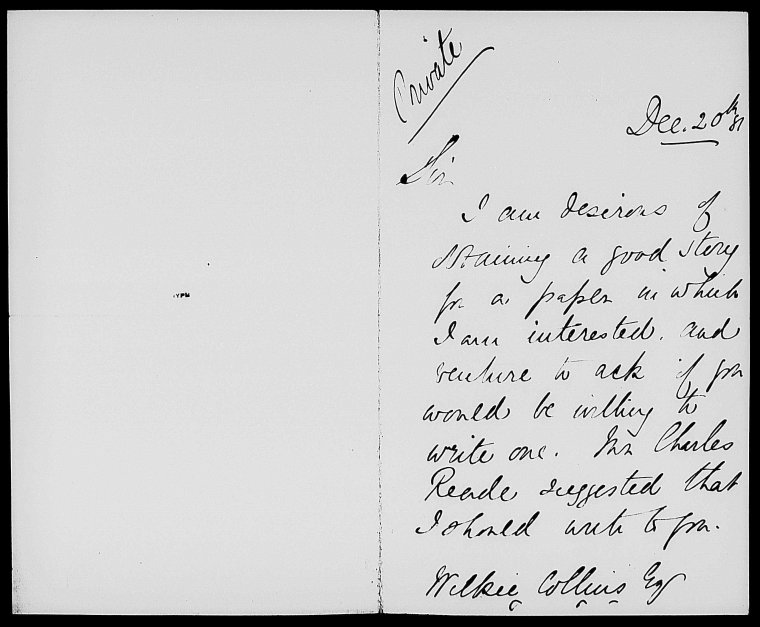 Private
Dec. 20th 81
Sir
I am desirous of
obtaining a good story
for a paper in which
I am interested. and
venture to ask if you
would be willing to
write one. Mr Charles
Reade suggested that
I should write to you.
Wilkie Collins Esq